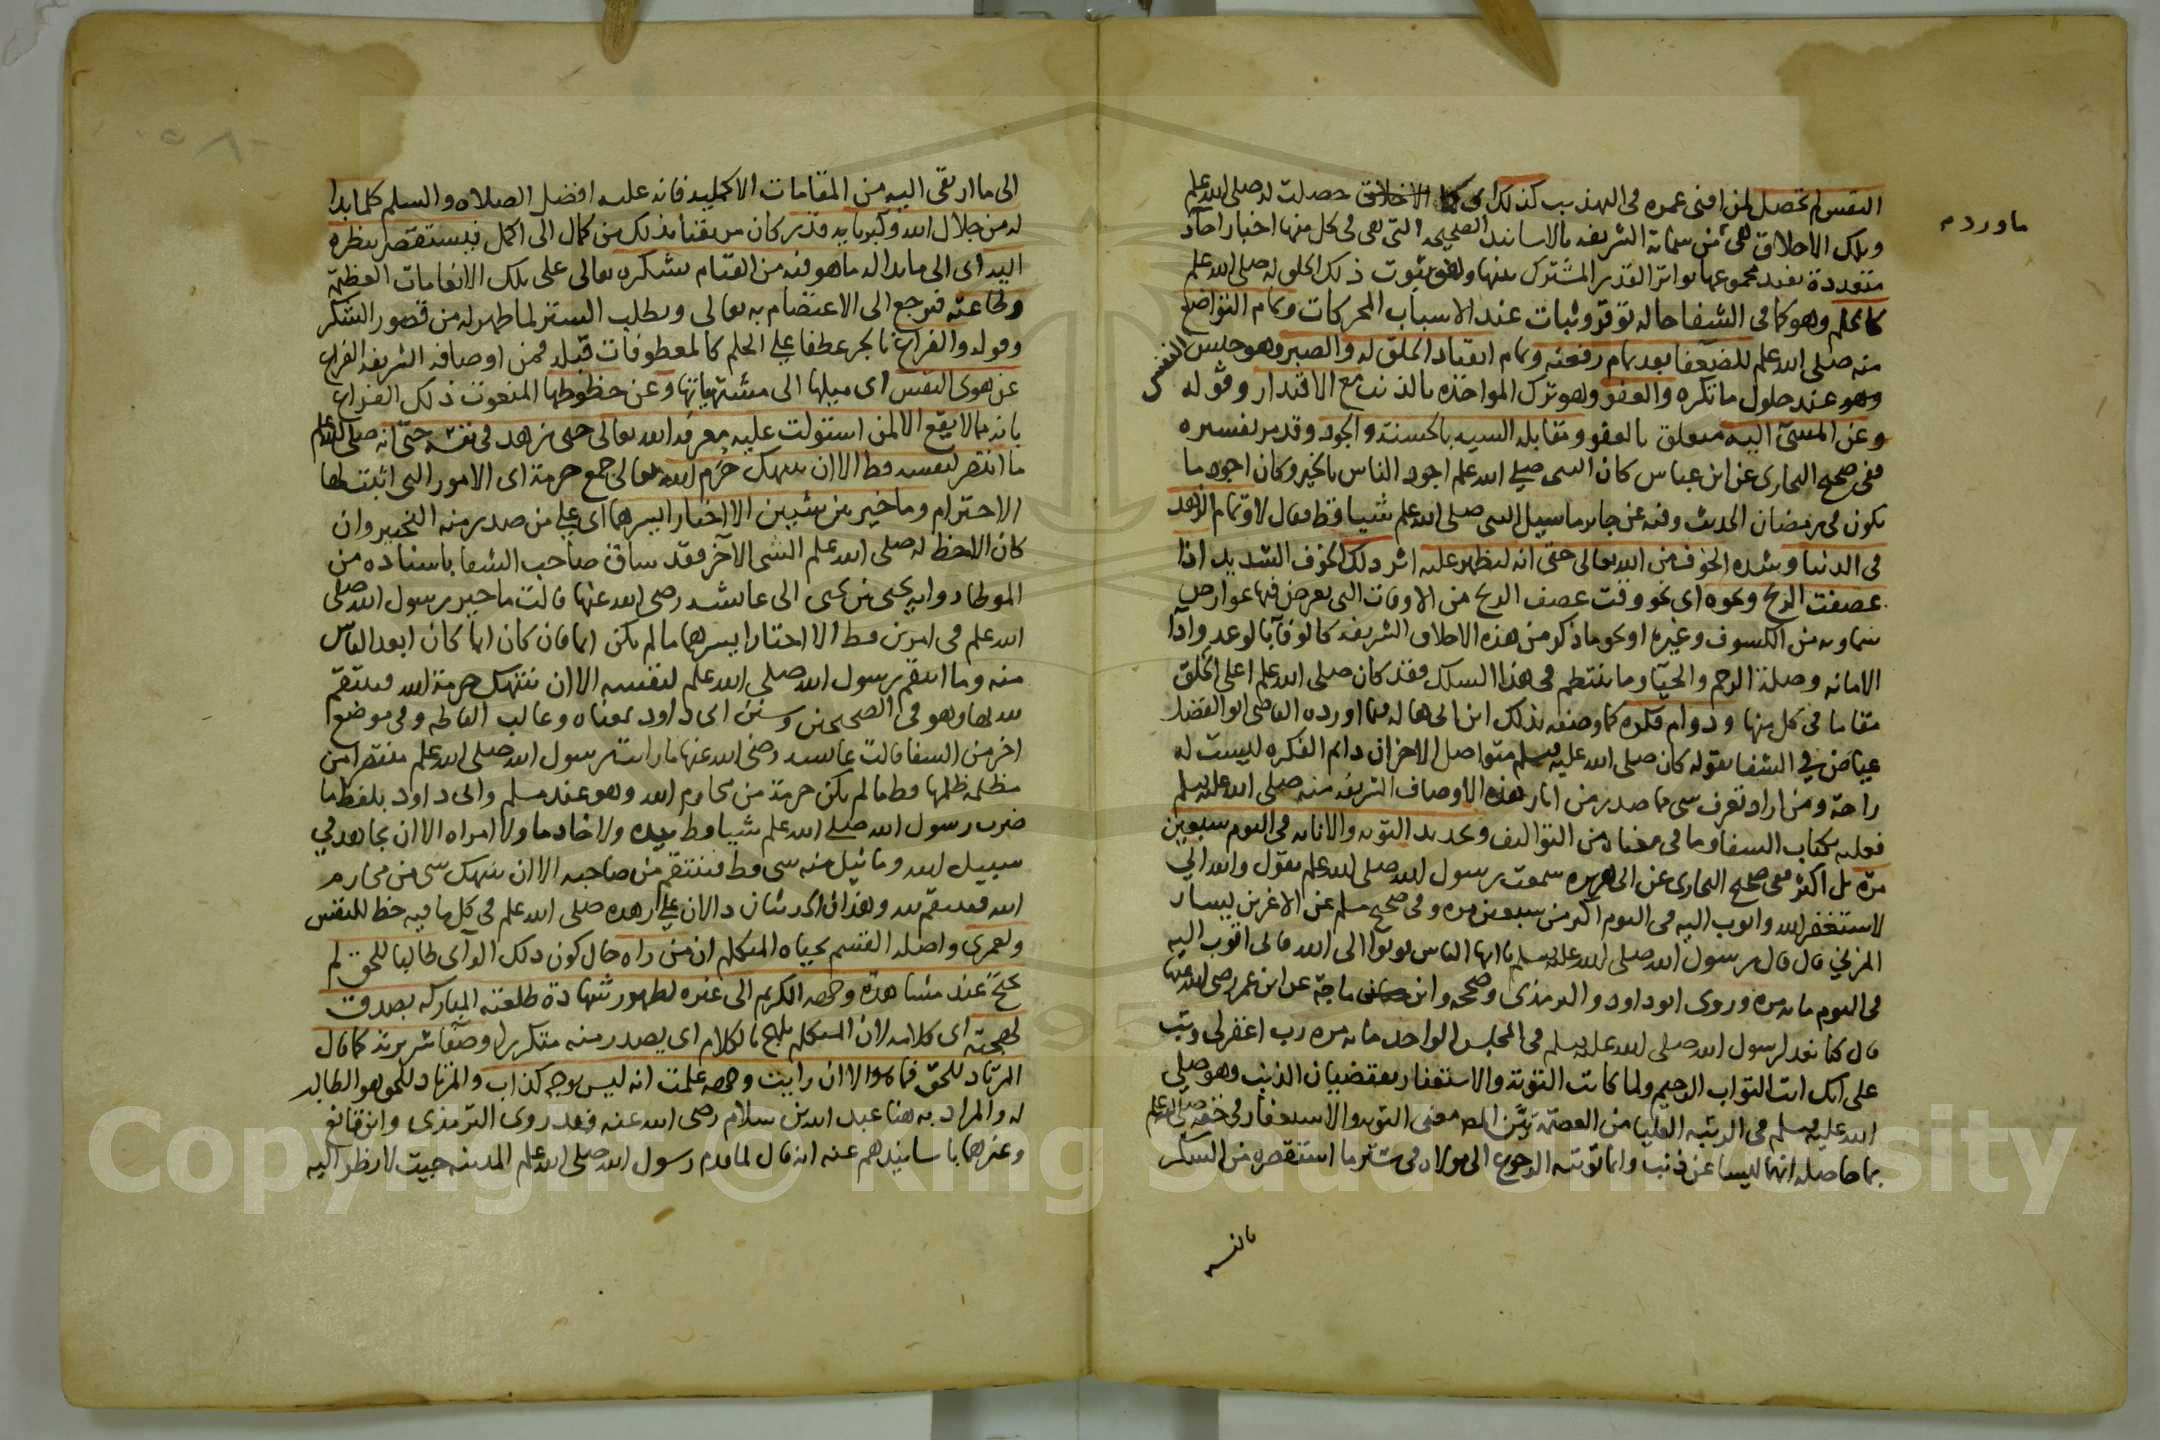 النفس لم تحصل لمن افنى عمره في التهذيب كذلك اي كما الاخلاق حصلت له صلى الله علم
وتلك الاخلاق هي من سماته الشريفه بالاسانيد الصحيحه التي هي في كل منها اخبار احاد
متعددة يفيد مجموعها تواتر القدر المشترك بينها وهو ثبوت ذلك الخلق له صلى الله علم
كالحلم وهو كما في الشفا حاله توقر وثبات عند الاسباب المحركات وتمام التواضع
منه صلى الله علم للضعفا بعد تمام رفعته وتمام انقياد الخلق له والصبر وهو حبس النفس
وهو عند حلول ما تكره والعفو وهو ترك المواخذه بالذنب مع الاقتدار وقوله
وعن المسئ اليه متعلق بالعفو ومقابله السيه بالحسنة والجود وقد مر تفسيره
ففي صحيح البخاري عن ابن عباس كان النبي صلى الله علم اجود الناس بالخير وكان اجود ما
يكون في رمضان الحديث وفيه عن جابر ما سيل النبي صلى الله علم شيا قط فقال لا وتمام الزهد
في الدنيا وشده الخوف من الله تعالى حتى انه ليظهر عليه اثر ذلك الخوف الشديد اذا
عصفت الريح ونحوه اي نحو وقت عصف الريح من الاوقات التي يعرض فيها عوارض
سماويه من الكسوف وغيره او نحو ما ذكر من هذه الاخلاق الشريفه كالوفآ بالوعد وادا
الامانه وصلة الرحم والحيآ وما ينتظم في هذا السلك فقد كان صلى الله علم اعلى الخلق
مقاما في كل منها ودوام فكره كما وصفه بذلك ابن ابي هاله فيما اورده القاضي ابو الفضل
عياض في الشفا بقوله كان صلى الله عليه وسلم متواصل الاحزان دايم الفكره ليست له
راحة ومن اراد تعرف شي مما صدر من اثار هذه الاوصاف الشريفه منه صلى الله عليه وسلم
فعليه بكتاب الشفا وما في معناه من التواليف وتجديد التوبه والانابه في اليوم سبعين
مرة بل اكثر ففي صحيح البخاري عن ابي هريره سمعت رسول الله صلى الله علم يقول والله اني
لاستغفر الله واتوب اليه في اليوم اكثر من سبعين مره وفي صحيح مسلم عن الاغر بن يسار
المزني قال قال رسول الله صلى الله عليه وسلم يا ايها الناس توبوا الى الله فاني اتوب اليه
في اليوم مايه مره وروى ابو داود والترمذي وصححه وابن ماجة عن ابن عمر رضي الله عنهما
قال كنا نعد لرسول الله صلى الله عليه وسلم في المجلس الواحد مايه مره رب اغفر لي وتب
علي انك انت التواب الرحيم ولما كانت التوبة والاستغفار يقتضيان الذنب وهو صلى
الله عليه وسلم في الرتبه العليا من العصمة بيّن المص معنى التوبه والاستغفار في حقه صلى الله علم
بما حاصله انهما ليسا عن ذنب وانما توبته الرجوع الى مولاه في ستر ما استنقصه من الشكر
بالنسبه
ما ورد م
الى ما ارتقى اليه من المقامات الاكمليه فانه عليه افضل الصلاه والسلم كلما بدا
له من جلال الله وكبريايه قدر كان مرتقيا بذلك من كمال الى اكمل فيستقصر بنظره
اليه اي الى ما بدا له ما هو فيه من القيام بشكره تعالى على تلك الانعامات العظيمة
وطاعته فيرجع الى الاعتصام به تعالى ويطلب الستر لما ظهر له من قصور الشكر
وقوله والفراغ بالجر عطفا على الحلم كالمعطوفات قبله فمن اوصافه الشريفه الفراغ
عن هوى النفس اي ميلها الى مشتهياتها وعن حظوظها المنعوت ذلك الفراغ
بانه مما لا يقع الا لمن استولت عليه معرفه الله تعالى حتى زهد في نفسه حتى انه صلى الله علم
ما انتصر لنفسه قط الا ان تنتهك حُرَم الله تعالى جمع حرمة اي الامور التي اثبت لها
الاحترام وما خير بين شيين الا اختار ايسرهما اي على من صدر منه التخيير وان
كان الاحظ له صلى الله علم الشي الآخر فقد ساق صاحب الشفا باسناده من
الموطا روايه يحيى بن يحيى الى عايشه رضي الله عنها قالت ما خير رسول الله صلى
الله علم في امرين قط الا اختار ايسرهما ما لم يكن اثما فان كان اثما كان ابعد الناس
منه وما انتقم رسول الله صلى الله علم لنفسه الا ان تنتهك حرمة الله فينتقم
لله بها وهو في الصحيحين وسنن ابي داود بمعناه وغالب الفاظه وفي موضع
اخر من الشفا قالت عايشه رضي الله عنها ما رايت رسول الله صلى الله علم منتصرا من
مظلمه ظلمها قط ما لم يكن حرمة من محارم الله وهو عند مسلم وابي داود بلفظ ما
ضرب رسول الله صلى الله علم شيا قط بيده ولا خادما ولا امراه الا ان يجاهد في
سبيل الله وما نيل منه شي قط فينتقم من صاحبه الا ان ينتهك شي من محارم
الله فينتقم لله وهذان الحديثان دالان على زهده صلى الله علم في كل ما فيه حظ للنفس
ولعمري واصله القسم بحياه المتكلم ان من راه حال كون ذلك الرآى طالبا للحق لم
يحتج عند مشاهدة وجهه الكريم الى غيره لظهور شهادة طلعته المباركه بصدق
لهجته اي كلامه لان المتكلم يلهج بالكلام اي يصدر منه متكررا وصفا سريرته كما قال
المرتاد للحق فما هو الا ان رايت وجهه علمت انه ليس بوجه كذاب والمرتاد للحق هو الطالب
له والمراد به هنا عبد الله بن سلام رضي الله عنه فقد روى الترمذي وابن قانع
وغيرهما باسانيدهم عنه انه قال لما قدم رسول الله صلى الله علم المدينه جيت لانظر اليه